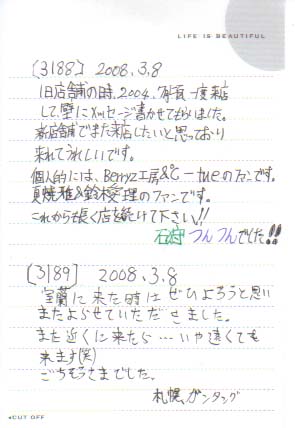 LIFE IS BEAUTIFUL
[3188] 2008.3.8
旧店舗の時、2004、年一度来店
して、壁にメッセージ書かせてもらいました。
新店舗でまた来店したいと思っており
来れてうれしいです。
個人的には、Berryz工房&℃-uteのファンです。
夏焼雅&鈴木愛理のファンです。
これからも長く店を続けて下さい!!
石狩 つんつんでした!!
[3189] 2008.3.8
室蘭に来た時はぜひよろうと思い
またよらせていただきました。
また近くに来たら…いや遠くても
来ます(笑)
ごちそうさまでした。
札幌、ガンタンク
◂CUT OFF